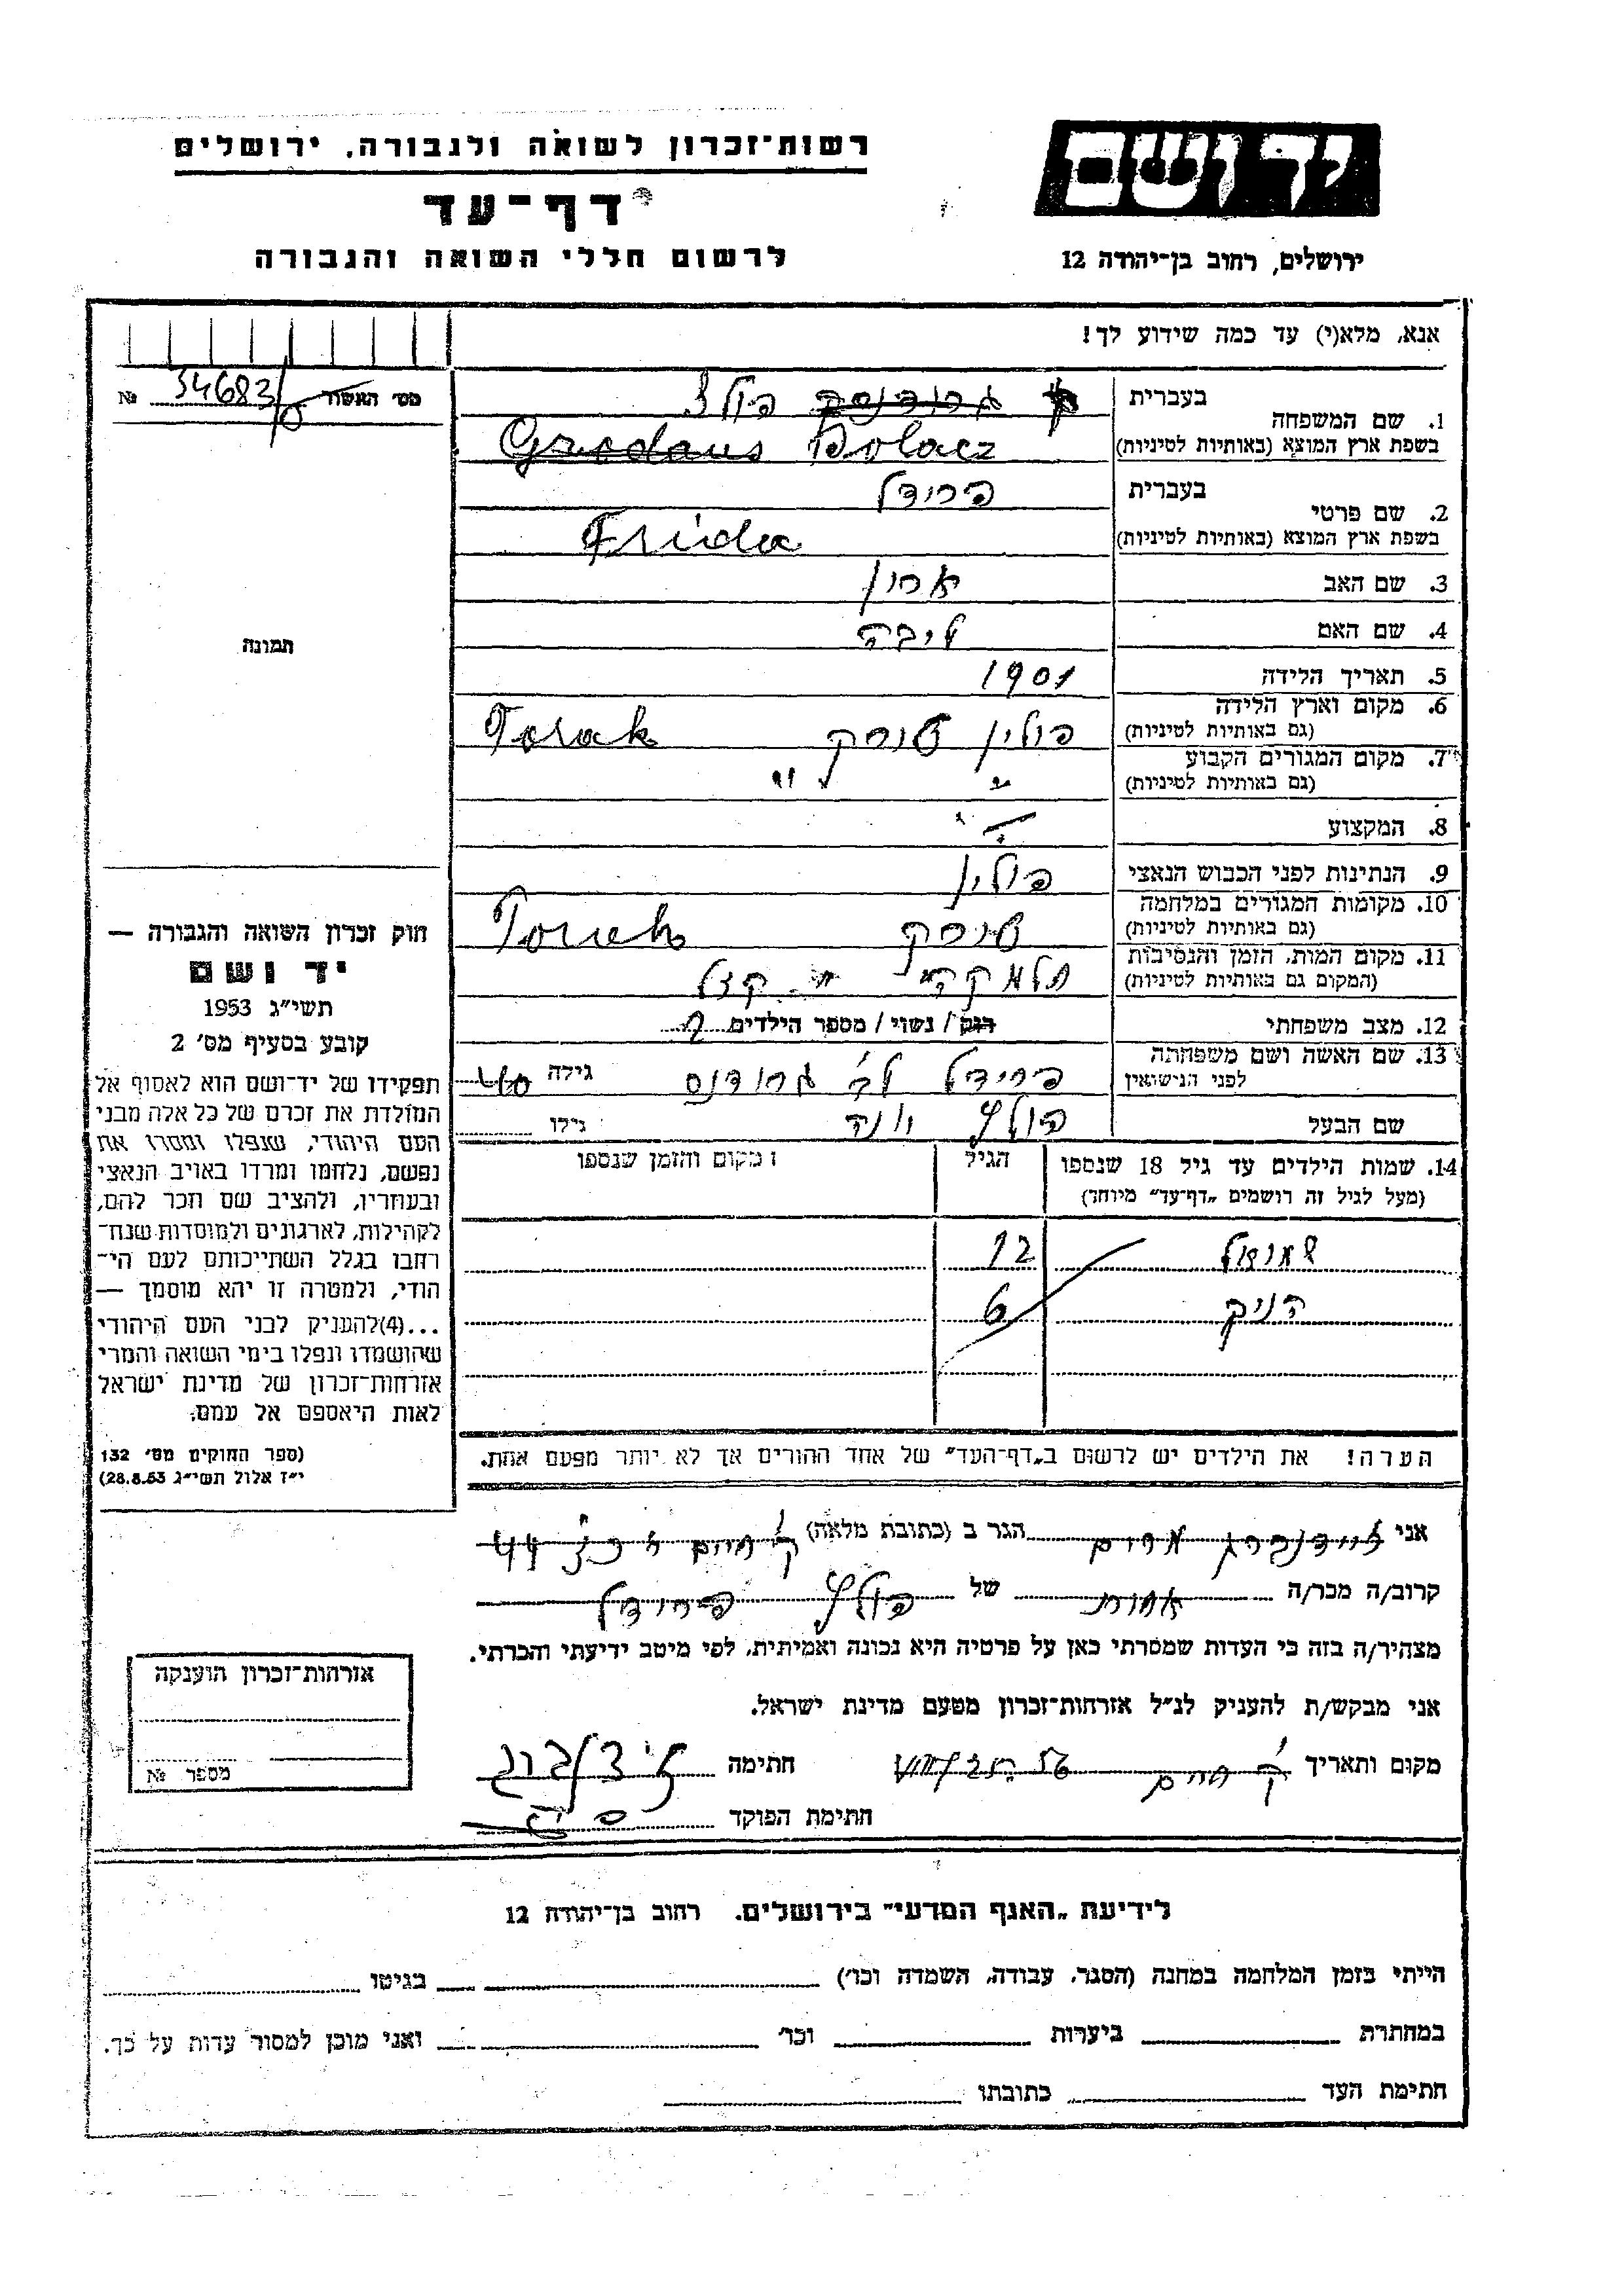 רשות־זכרון לשואה ולגבורה, ירושלים
דף־עד
לרשום חללי השואה והגבורה
יד ושם
ירושלים, רחוב בן־יהודה 12
אנא, מלא(י) עד כמה שידוע לך!
מס׳ האשור № 34683
1. שם המשפחה
בעברית
בשפת ארץ המוצא (באותיות לטיניות)
2. שם פרטי
בעברית פרידל
בשפת ארץ המוצא (באותיות לטיניות) Frida
3. שם האב ארון
4. שם האם ליבה
5. תאריך הלידה 1901
6. מקום וארץ הלידה
(גם באותיות לטיניות) פולין טורק Torek
7. מקום המגורים הקבוע
(גם באותיות לטיניות) " "
8. המקצוע
9. הנתינות לפני הכבוש הנאצי פולין
10. מקומות המגורים במלחמה
(גם באותיות לטיניות) טורק Torek
11. מקום המות, הזמן והנסיבות
(המקום גם באותיות לטיניות)
12. מצב משפחתי רווק / נשוי / מספר הילדים 2
13. שם האשה ושם משפחתה
לפני הנישואין פרידל לב׳ גרודנס גילה 40
שם הבעל גילו
14. שמות הילדים עד גיל 18 שנספו
(מעל לגיל זה רושמים „דף־עד" מיוחד)
הגיל
מקום והזמן שנספו
שמואל 12
הניק 6
הערה! את הילדים יש לרשום ב„דף־העד" של אחד ההורים אך לא יותר מפעם אחת.
תמונה
חוק זכרון השואה והגבורה —
יד ושם
תשי״ג 1953
קובע בסעיף מס׳ 2
תפקידו של יד־ושם הוא לאסוף אל
המולדת את זכרם של כל אלה מבני
העם היהודי, שנפלו ומסרו את
נפשם, נלחמו ומרדו באויב הנאצי
ובעוזריו, ולהציב שם וזכר להם,
לקהילות, לארגונים ולמוסדות שנח־
רבו בגלל השתייכותם לעם הי־
הודי, ולמטרה זו יהא מוסמך —
...(4)להעניק לבני העם היהודי
שהושמדו ונפלו בימי השואה והמרי
אזרחות־זכרון של מדינת ישראל
לאות היאספם אל עמם.
(ספר החוקים מס׳ 132
י״ז אלול תשי״ג 28.8.53)
אני הגר ב (כתובת מלאה)
קרוב/ה מכר/ה אחות של פרידל
מצהיר/ה בזה כי העדות שמסרתי כאן על פרטיה היא נכונה ואמיתית, לפי מיטב ידיעתי והכרתי.
אני מבקש/ת להעניק לנ״ל אזרחות־זכרון מטעם מדינת ישראל.
מקום ותאריך ק׳ חיים חתימה
חתימת הפוקד
אזרחות־זכרון הוענקה
מספר №
לידיעת „האגף המדעי" בירושלים, רחוב בן־יהודה 12
הייתי בזמן המלחמה במחנה (הסגר, עבודה, השמדה וכו׳) בגיטו
במחתרת ביערות וכו׳ ואני מוכן למסור עדות על כך.
חתימת העד כתובתו